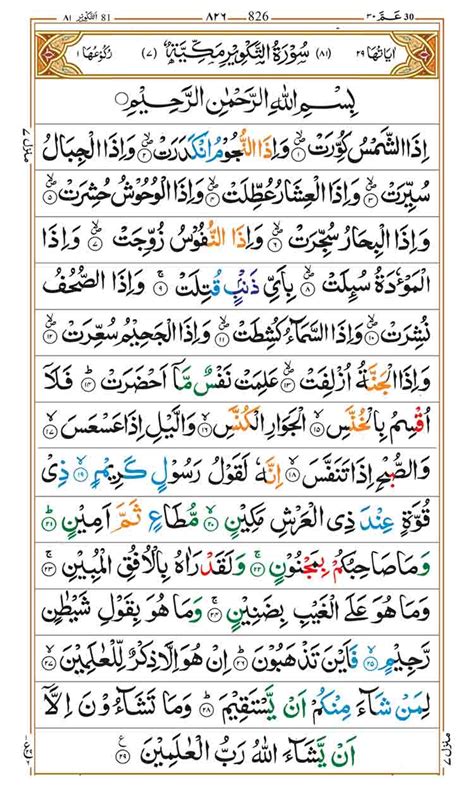 81 التكوير ٨١ ٨٢٦ 826 30 عمّ ٣٠
اٰيَاتُهَا ٢٩ (٨١) سُوْرَةُ التَّكْوِيْرِ مَكِّيَّةٌ (٧) رُكُوْعُهَا ١
بِسْمِ اللّٰهِ الرَّحْمٰنِ الرَّحِيْمِ
اِذَا الشَّمْسُ كُوِّرَتْ ۙ ١ وَاِذَا النُّجُوْمُ انْكَدَرَتْ ۙ ٢ وَاِذَا الْجِبَالُ
سُيِّرَتْ ۙ ٣ وَاِذَا الْعِشَارُ عُطِّلَتْ ۙ ٤ وَاِذَا الْوُحُوْشُ حُشِرَتْ ۙ ٥
وَاِذَا الْبِحَارُ سُجِّرَتْ ۙ ٦ وَاِذَا النُّفُوْسُ زُوِّجَتْ ۙ ٧ وَاِذَا
الْمَوْءٗدَةُ سُىِٕلَتْ ۙ ٨ بِاَيِّ ذَنْۢبٍ قُتِلَتْ ۚ ٩ وَاِذَا الصُّحُفُ
نُشِرَتْ ۙ ١٠ وَاِذَا السَّمَآءُ كُشِطَتْ ۙ ١١ وَاِذَا الْجَحِيْمُ سُعِّرَتْ ۙ ١٢
وَاِذَا الْجَنَّةُ اُزْلِفَتْ ۙ ١٣ عَلِمَتْ نَفْسٌ مَّاۤ اَحْضَرَتْ ؕ ١٤ فَلَاۤ
اُقْسِمُ بِالْخُنَّسِ ۙ ١٥ الْجَوَارِ الْكُنَّسِ ۙ ١٦ وَالَّيْلِ اِذَا عَسْعَسَ ۙ ١٧
وَالصُّبْحِ اِذَا تَنَفَّسَ ۙ ١٨ اِنَّهٗ لَقَوْلُ رَسُوْلٍ كَرِيْمٍ ۙ ١٩ ذِيْ
قُوَّةٍ عِنْدَ ذِي الْعَرْشِ مَكِيْنٍ ۙ ٢٠ مُّطَاعٍ ثَمَّ اَمِيْنٍ ؕ ٢١
وَمَا صَاحِبُكُمْ بِمَجْنُوْنٍ ۚ ٢٢ وَلَقَدْ رَاٰهُ بِالْاُفُقِ الْمُبِيْنِ ۚ ٢٣
وَمَا هُوَ عَلَى الْغَيْبِ بِضَنِيْنٍ ۚ ٢٤ وَمَا هُوَ بِقَوْلِ شَيْطٰنٍ
رَّجِيْمٍ ۙ ٢٥ فَاَيْنَ تَذْهَبُوْنَ ؕ ٢٦ اِنْ هُوَ اِلَّا ذِكْرٌ لِّلْعٰلَمِيْنَ ۙ ٢٧
لِمَنْ شَآءَ مِنْكُمْ اَنْ يَّسْتَقِيْمَ ؕ ٢٨ وَمَا تَشَآءُوْنَ اِلَّاۤ
اَنْ يَّشَآءَ اللّٰهُ رَبُّ الْعٰلَمِيْنَ ٢٩ ع
منزل ٧
منزل ٧